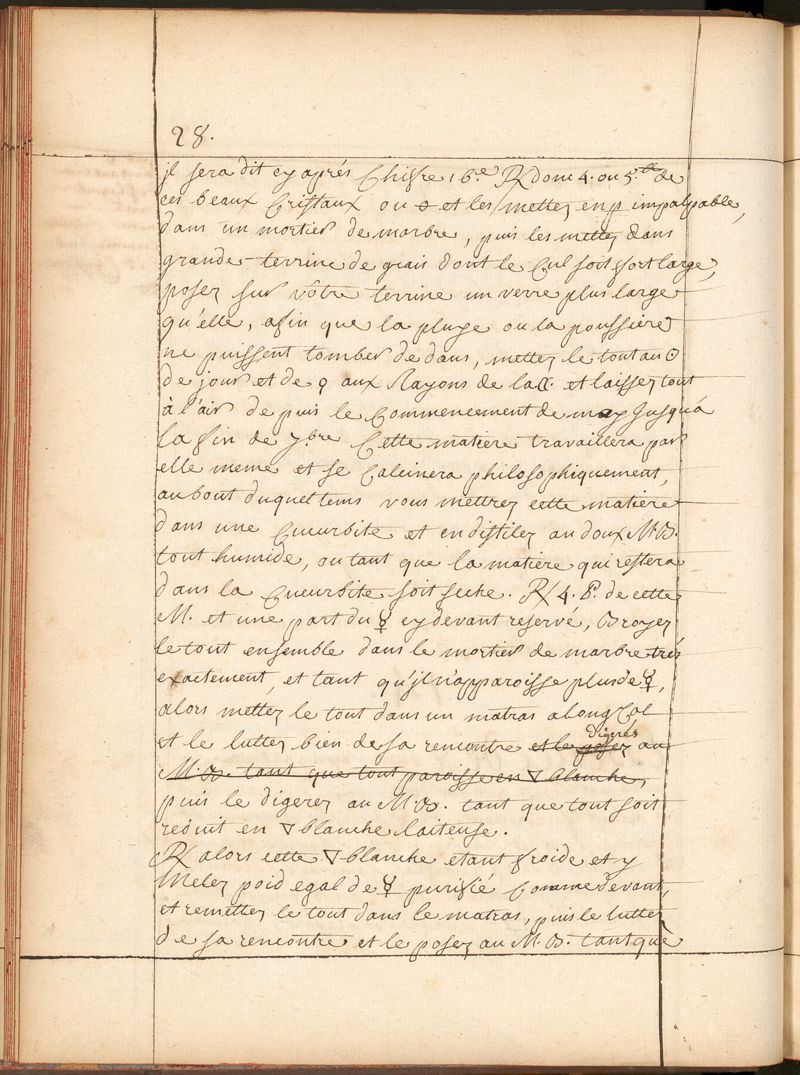 28.
jl sera dit cy aprés Chifre 16.e ℞ donc 4. ou 5 ℔ de
ces beaux Cristaux ou et les mettez en p impalpable,
dans un mortier de marbre, puis les mettez dans
grande terrine de grais dont le Cul soit fort large,
posez sur vôtre terrine un verre plus large
qu'elle, afin que la pluye ou la poussiere
ne puissent tomber de dans, mettez le tout au ☉
de jour et de aux Rayons de la ☾. et laissez tout
à l'air de puis le Commencement de may Jusqu'a
la fin de 7.bre Cette matiere travaillera par
elle meme et se Calcinera philosophiquement,
au bout duquel tems vous mettrez cette matiere
dans une Cucurbite et en distilez au doux M.B.
tout humide, ou tant que la matiere qui restera
dans la Cucurbite soit seche. ℞ 4. P. de cette
M. et une part du ☿ cy devant reservé, Broyez
le tout ensemble dans le mortier de marbre trés
exactement, et tant qu'jl n'apparoisse plus de ☿,
alors mettez le tout dans un matras a long Col
et le luttez bien de sa rencontre et le posez digerés au
M.B. tant que tout paroisse en ▽ blanche,
puis le digerez au M.B. tant que tout soit
reduit en ▽ blanche laiteuse.
℞ alors cette ▽ blanche etant froide et y
Melez poid egal de ☿ purifié Comme devant,
et remettez le tout dans le matras, puis le luttez
de sa rencontre et le posez au M.B. tant que